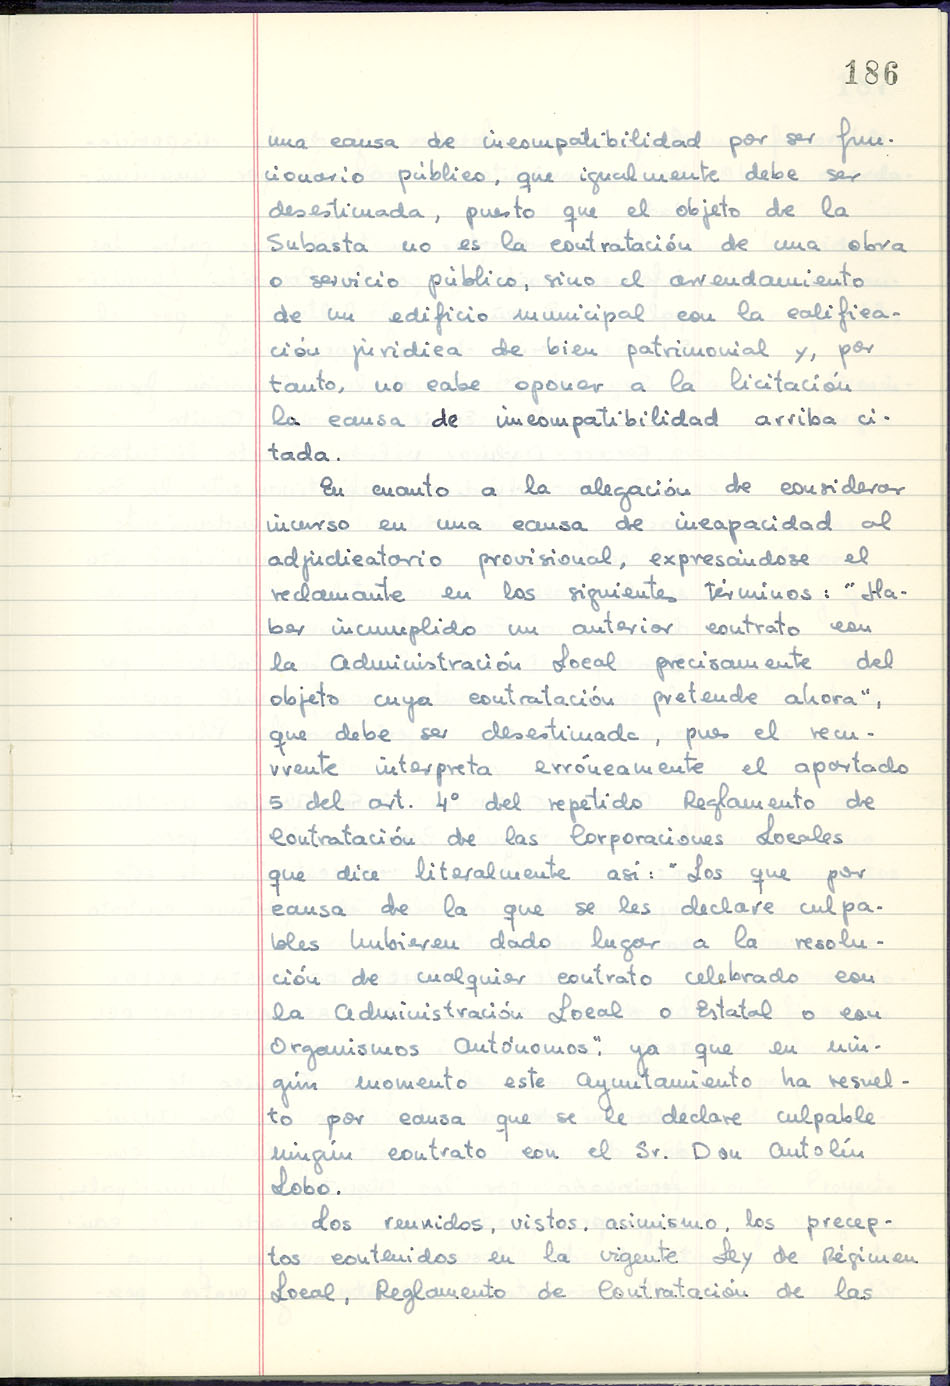 186
una causa de incompatibilidad por ser fun-
cionario público, que igualmente debe ser
desestimada, puesto que el objeto de la
Subasta no es la contratación de una obra
o servicio público, sino el arrendamiento
de un edificio municipal con la califica-
ción jurídica de bien patrimonial y, por
tanto, no cabe oponer a la licitación
la causa de incompatibilidad arriba ci-
tada.
En cuanto a la alegación de considerar
incurso en una causa de incapacidad al
adjudicatario provisional, expresándose el
reclamante en los siguientes términos: "Ha-
ber incumplido un anterior contrato con
la Administración Local precisamente del
objeto cuya contratación pretende ahora",
que debe ser desestimada, pues el recu-
rrente interpreta erróneamente el apartado
5 del art. 4º del repetido Reglamento de
Contratación de las Corporaciones Locales
que dice literalmente así: "Los que por
causa de la que se les declare culpa-
bles hubieren dado lugar a la resolu-
ción de cualquier contrato celebrado con
la Administración Local o Estatal o con
Organismos Autónomos", ya que en nin-
gún momento este Ayuntamiento ha resuel-
to por causa que se le declare culpable
ningún contrato con el Sr. Don Antolín
Lobo.
Los reunidos, vistos, asimismo, los precep-
tos contenidos en la vigente Ley de Régimen
Local, Reglamento de Contratación de las